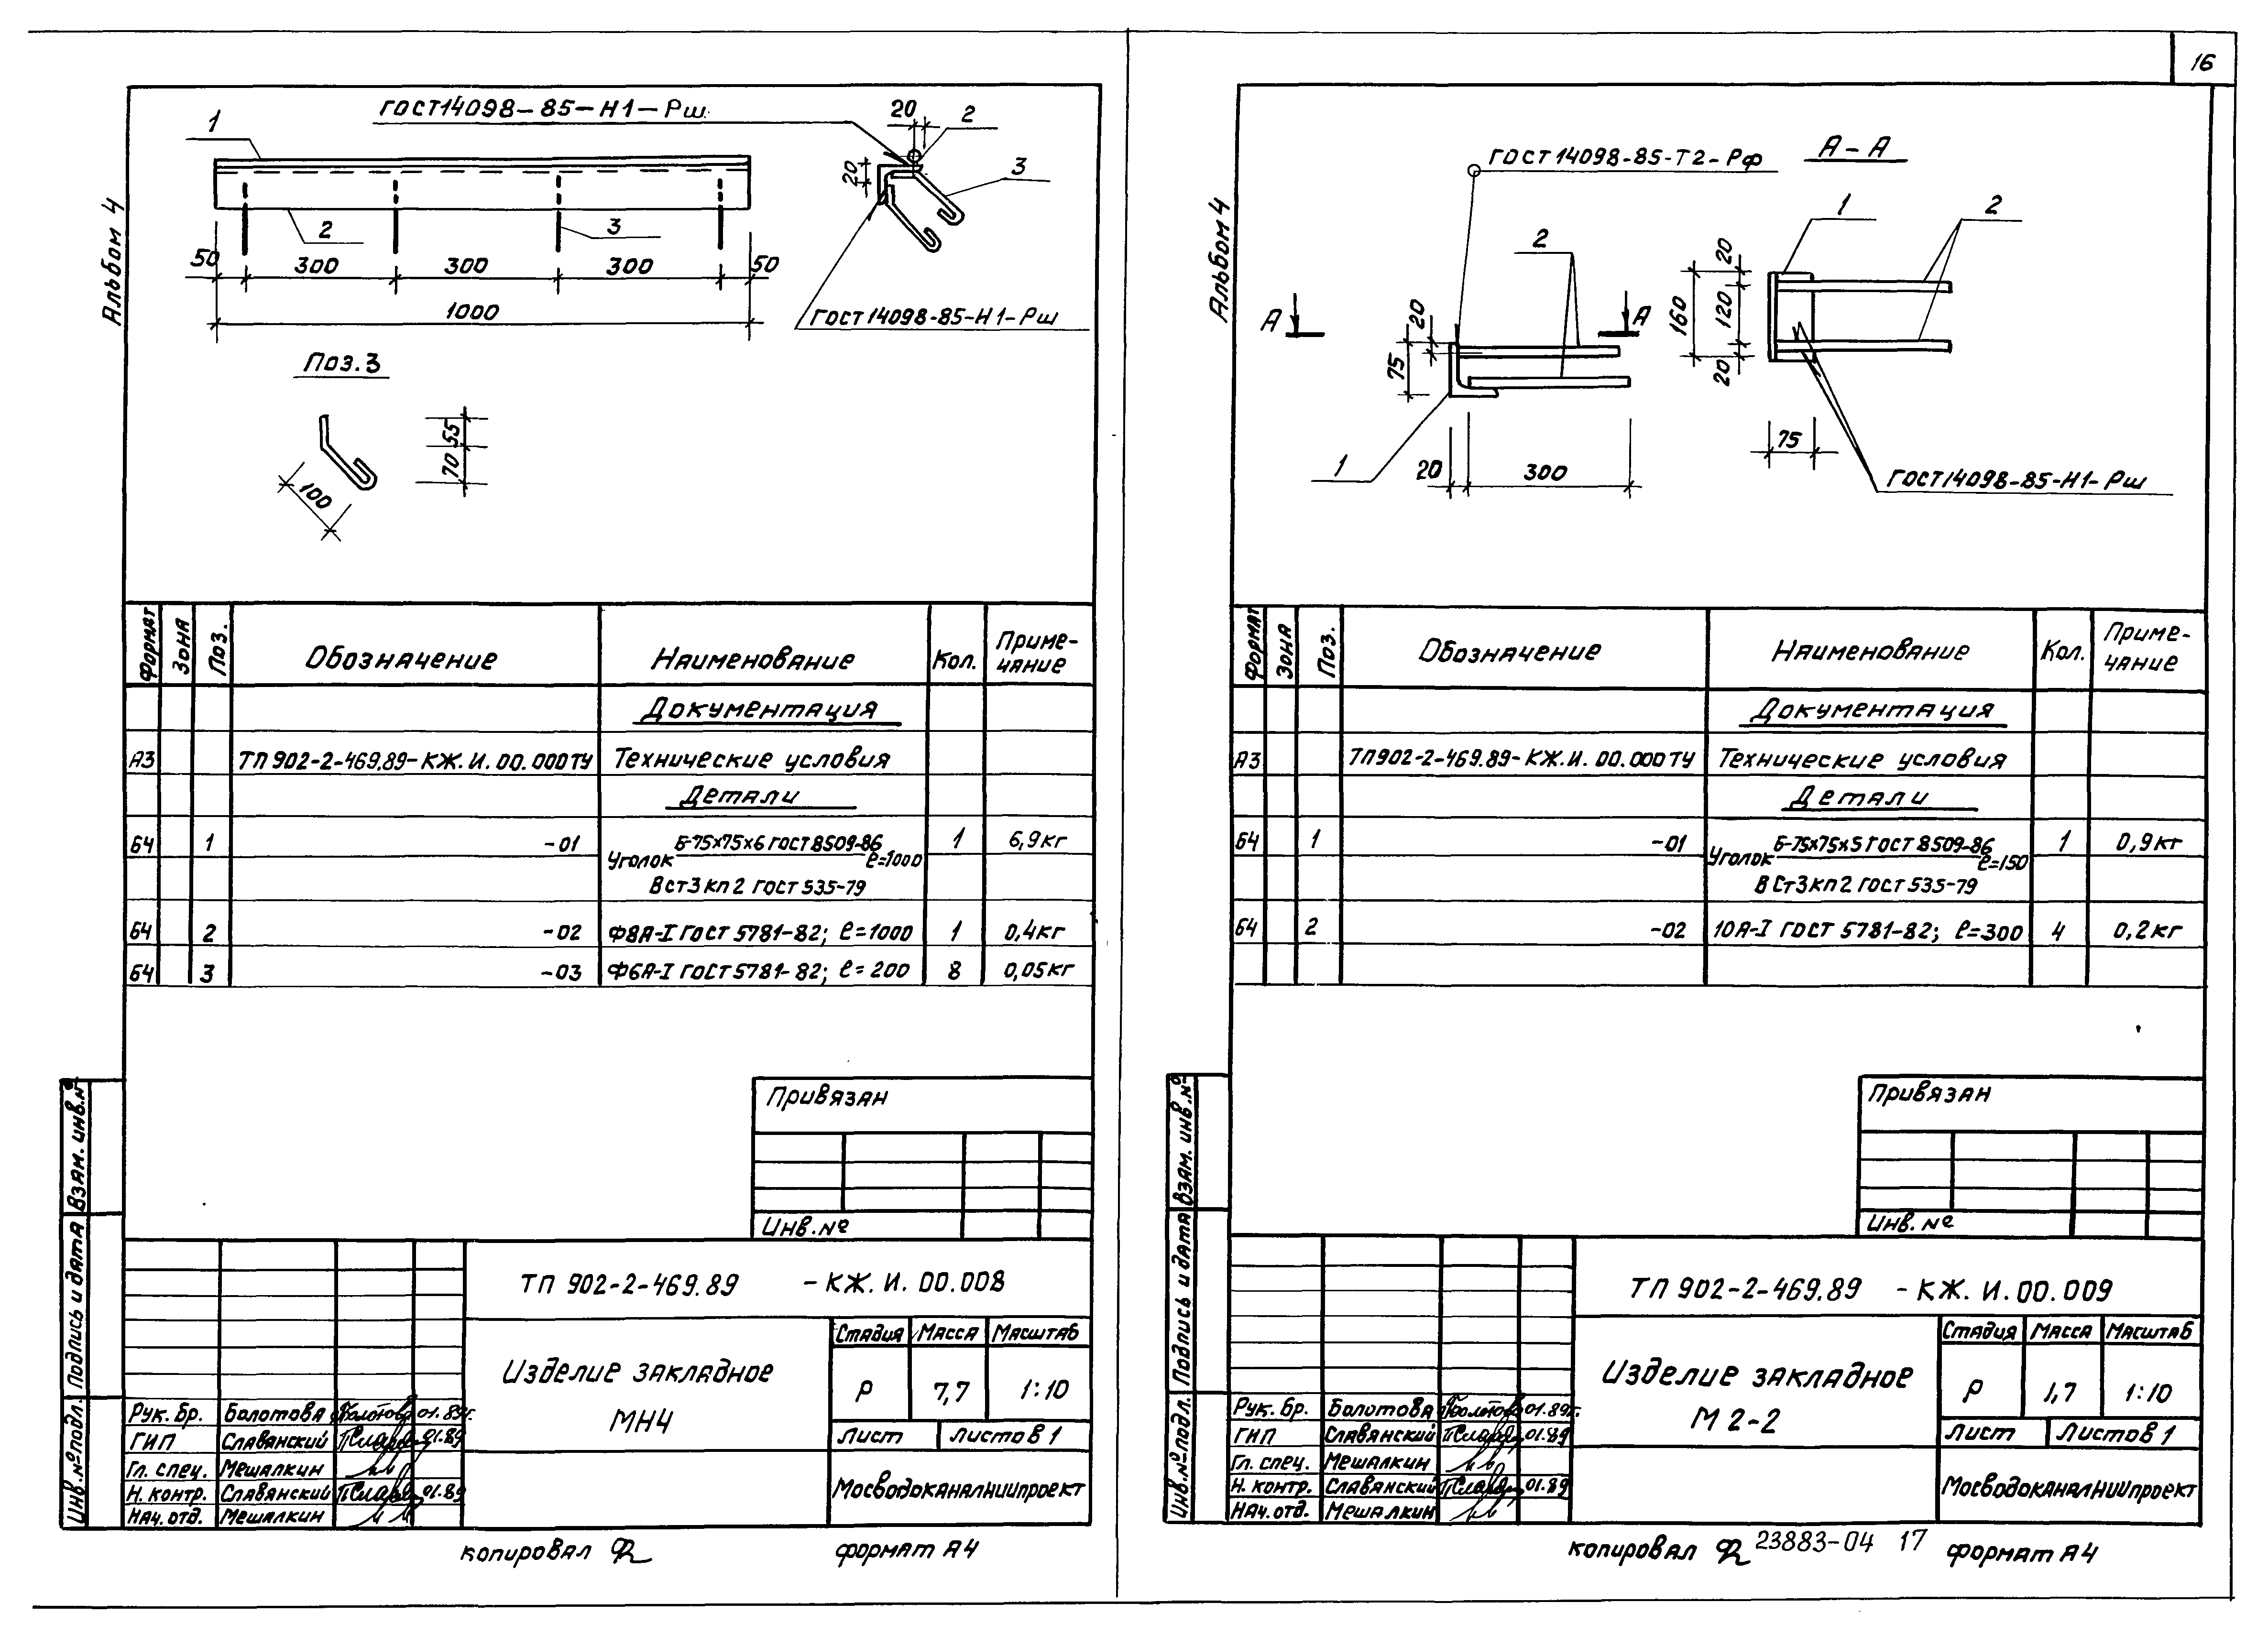 16
Альбом 4
ГОСТ14098-85-Н1-Рш
1
20
2
20
3
2
3
50
300
300
300
50
1000
ГОСТ14098-85-Н1-Рш
Поз.3
55
70
100
Формат Зона Поз. Обозначение Наименование Кол. Приме-
чание
Документация
А3 ТП902-2-469.89-КЖ.И.00.000ТУ Технические условия
Детали
Б4 1 -01 Уголок Б-75х75х6 ГОСТ 8509-86 1 6,9кг
ℓ=1000
ВСт3кп2 ГОСТ 535-79
Б4 2 -02 Ф8А-I ГОСТ 5781-82; ℓ=1000 1 0,4кг
Б4 3 -03 Ф6А-I ГОСТ 5781-82; ℓ=200 8 0,05кг
Привязан
Инв.№
Взам. инв.№
Подпись и дата
Инв.№подл.
ТП 902-2-469.89 -КЖ.И.00.008
Изделие закладное
МН4
Стадия Масса Масштаб
Р 7,7 1:10
Лист Листов 1
Мосводоканалниипроект
Рук. бр. Болотова 01.89г.
ГИП Славянский 01.89
Гл. спец. Мешалкин
Н. контр. Славянский 01.89
Нач. отд. Мешалкин
копировал формат А4
Альбом 4
ГОСТ14098-85-Т2-Рф
А-А
1
2
2
20
160
120
20
А
А
20
75
75
1
20
300
ГОСТ14098-85-Н1-Рш
Формат Зона Поз. Обозначение Наименование Кол. Приме-
чание
Документация
А3 ТП902-2-469.89-КЖ.И.00.000ТУ Технические условия
Детали
Б4 1 -01 Уголок Б-75х75х5 ГОСТ 8509-86 1 0,9кг
ℓ=150
ВСт3кп2 ГОСТ 535-79
Б4 2 -02 10А-I ГОСТ 5781-82; ℓ=300 4 0,2кг
Привязан
Инв.№
Взам. инв.№
Подпись и дата
Инв.№подл.
ТП 902-2-469.89 -КЖ.И.00.009
Изделие закладное
М 2-2
Стадия Масса Масштаб
Р 1,7 1:10
Лист Листов 1
Мосводоканалниипроект
Рук. бр. Болотова 01.89г.
ГИП Славянский 01.89
Гл. спец. Мешалкин
Н. контр. Славянский 01.89
Нач. отд. Мешалкин
копировал 23883-04 17 формат А4